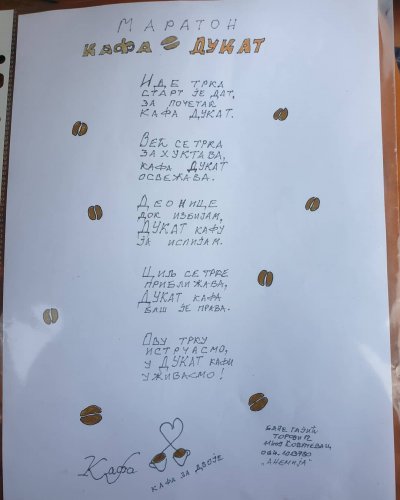 МАРАТОН
КАФА ДУКАТ
ИДЕ ТРКА
СТАРТ ЈЕ ДАТ,
ЗА ПОЧЕТАК
КАФА ДУКАТ.
ВЕЋ СЕ ТРКА
ЗАХУКТАВА,
КАФА ДУКАТ
ОСВЕЖАВА.
ДЕОНИЦЕ
ДОК ИЗБИЈАМ,
ДУКАТ КАФУ
ЈА ИСПИЈАМ.
ЦИЉ СЕ ТРКЕ
ПРИБЛИЖАВА,
ДУКАТ КАФА
БАШ ЈЕ ПРАВА.
ОВУ ТРКУ
ИСТРЧАСМО,
У ДУКАТ КАФИ
УЖИВАСМО!
Кафа
КАФА ЗА ДВОЈЕ
БАНЕ
КОВАЧЕВАЦ
"АНЕМИЈА"